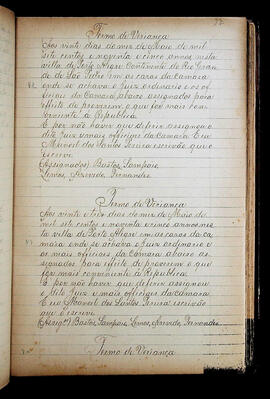 Termo de Veriança
Aos vinte dias do mez de Maio de mil
sete centos e noventa e cinco annos nesta
villa de Porto Alegre Continente do Rio Gran
de de São Pedro em as casas da Camara
onde se achava o Juiz ordinario e os of
ficiaes da Camara abaixo assignados para
effeito de proverem o que fosse mais con
veniente á Republica
E por não haver que deferir assignou o
dito Juiz e mais officiaes da Camara. E eu
Manoel dos Santos Ferreira escrivão que o
escrevi
(Assignados) Bastos, Sampaio
Lemos, Azevedo, Fernandes
Termo de Veriança
Aos vinte e tres dias do mez de Maio de
mil sete centos e noventa e cinco annos nes
ta villa de Porto Alegre em as casas da ca
mara onde se achava o juiz ordinario e
os mais officiaes da Camara abaixo as
signados para effeito de proverem o que
for mais conveniente á Republica
E por não haver que deferir assignou
o dito Juiz e mais officiaes da Camara
E eu Manoel dos Santos Ferreira escrivão
que o escrevi
(Assigos) Bastos, Sampaio, Lemos, Azevedo, Fernandes
Termo de Veriança